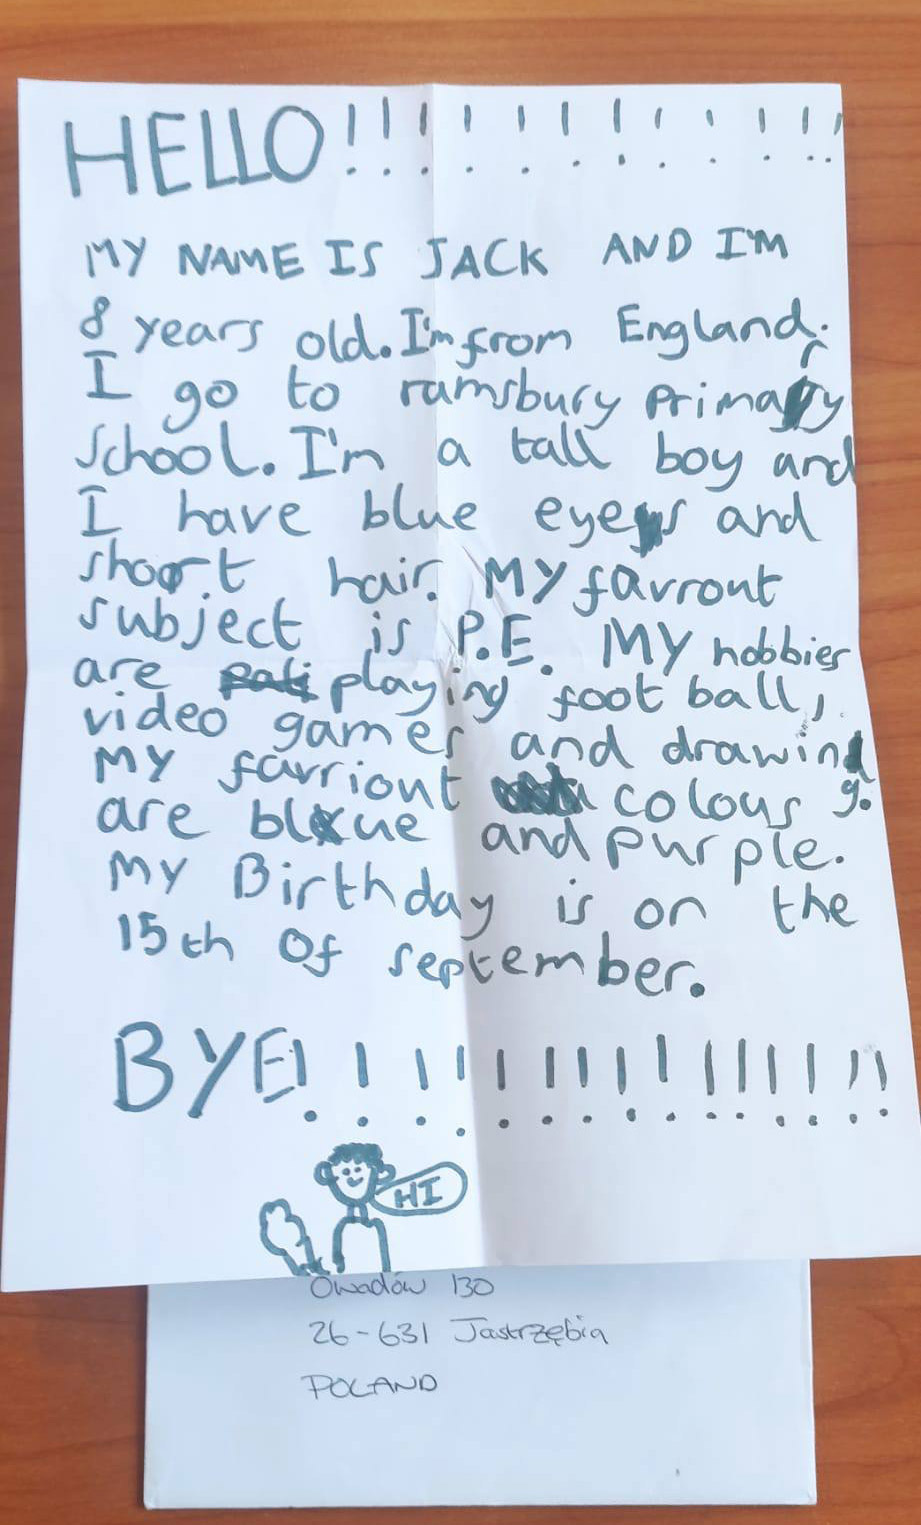 HELLO!!!!!!!!!!!!
MY NAME IS JACK AND I'M
8 years old. I'm from England.
I go to ramsbury primary
school. I'm a tall boy and
I have blue eyes and
short hair. My favront
subject is P.E. My hobbies
are playing foot ball,
video games and drawing.
My favriont colous
are blue and purple.
My Birthday is on the
15th of september.
BYE!!!!!!!!!!!!!!!
HI
Owadów 130
26-631 Jastrzębia
POLAND